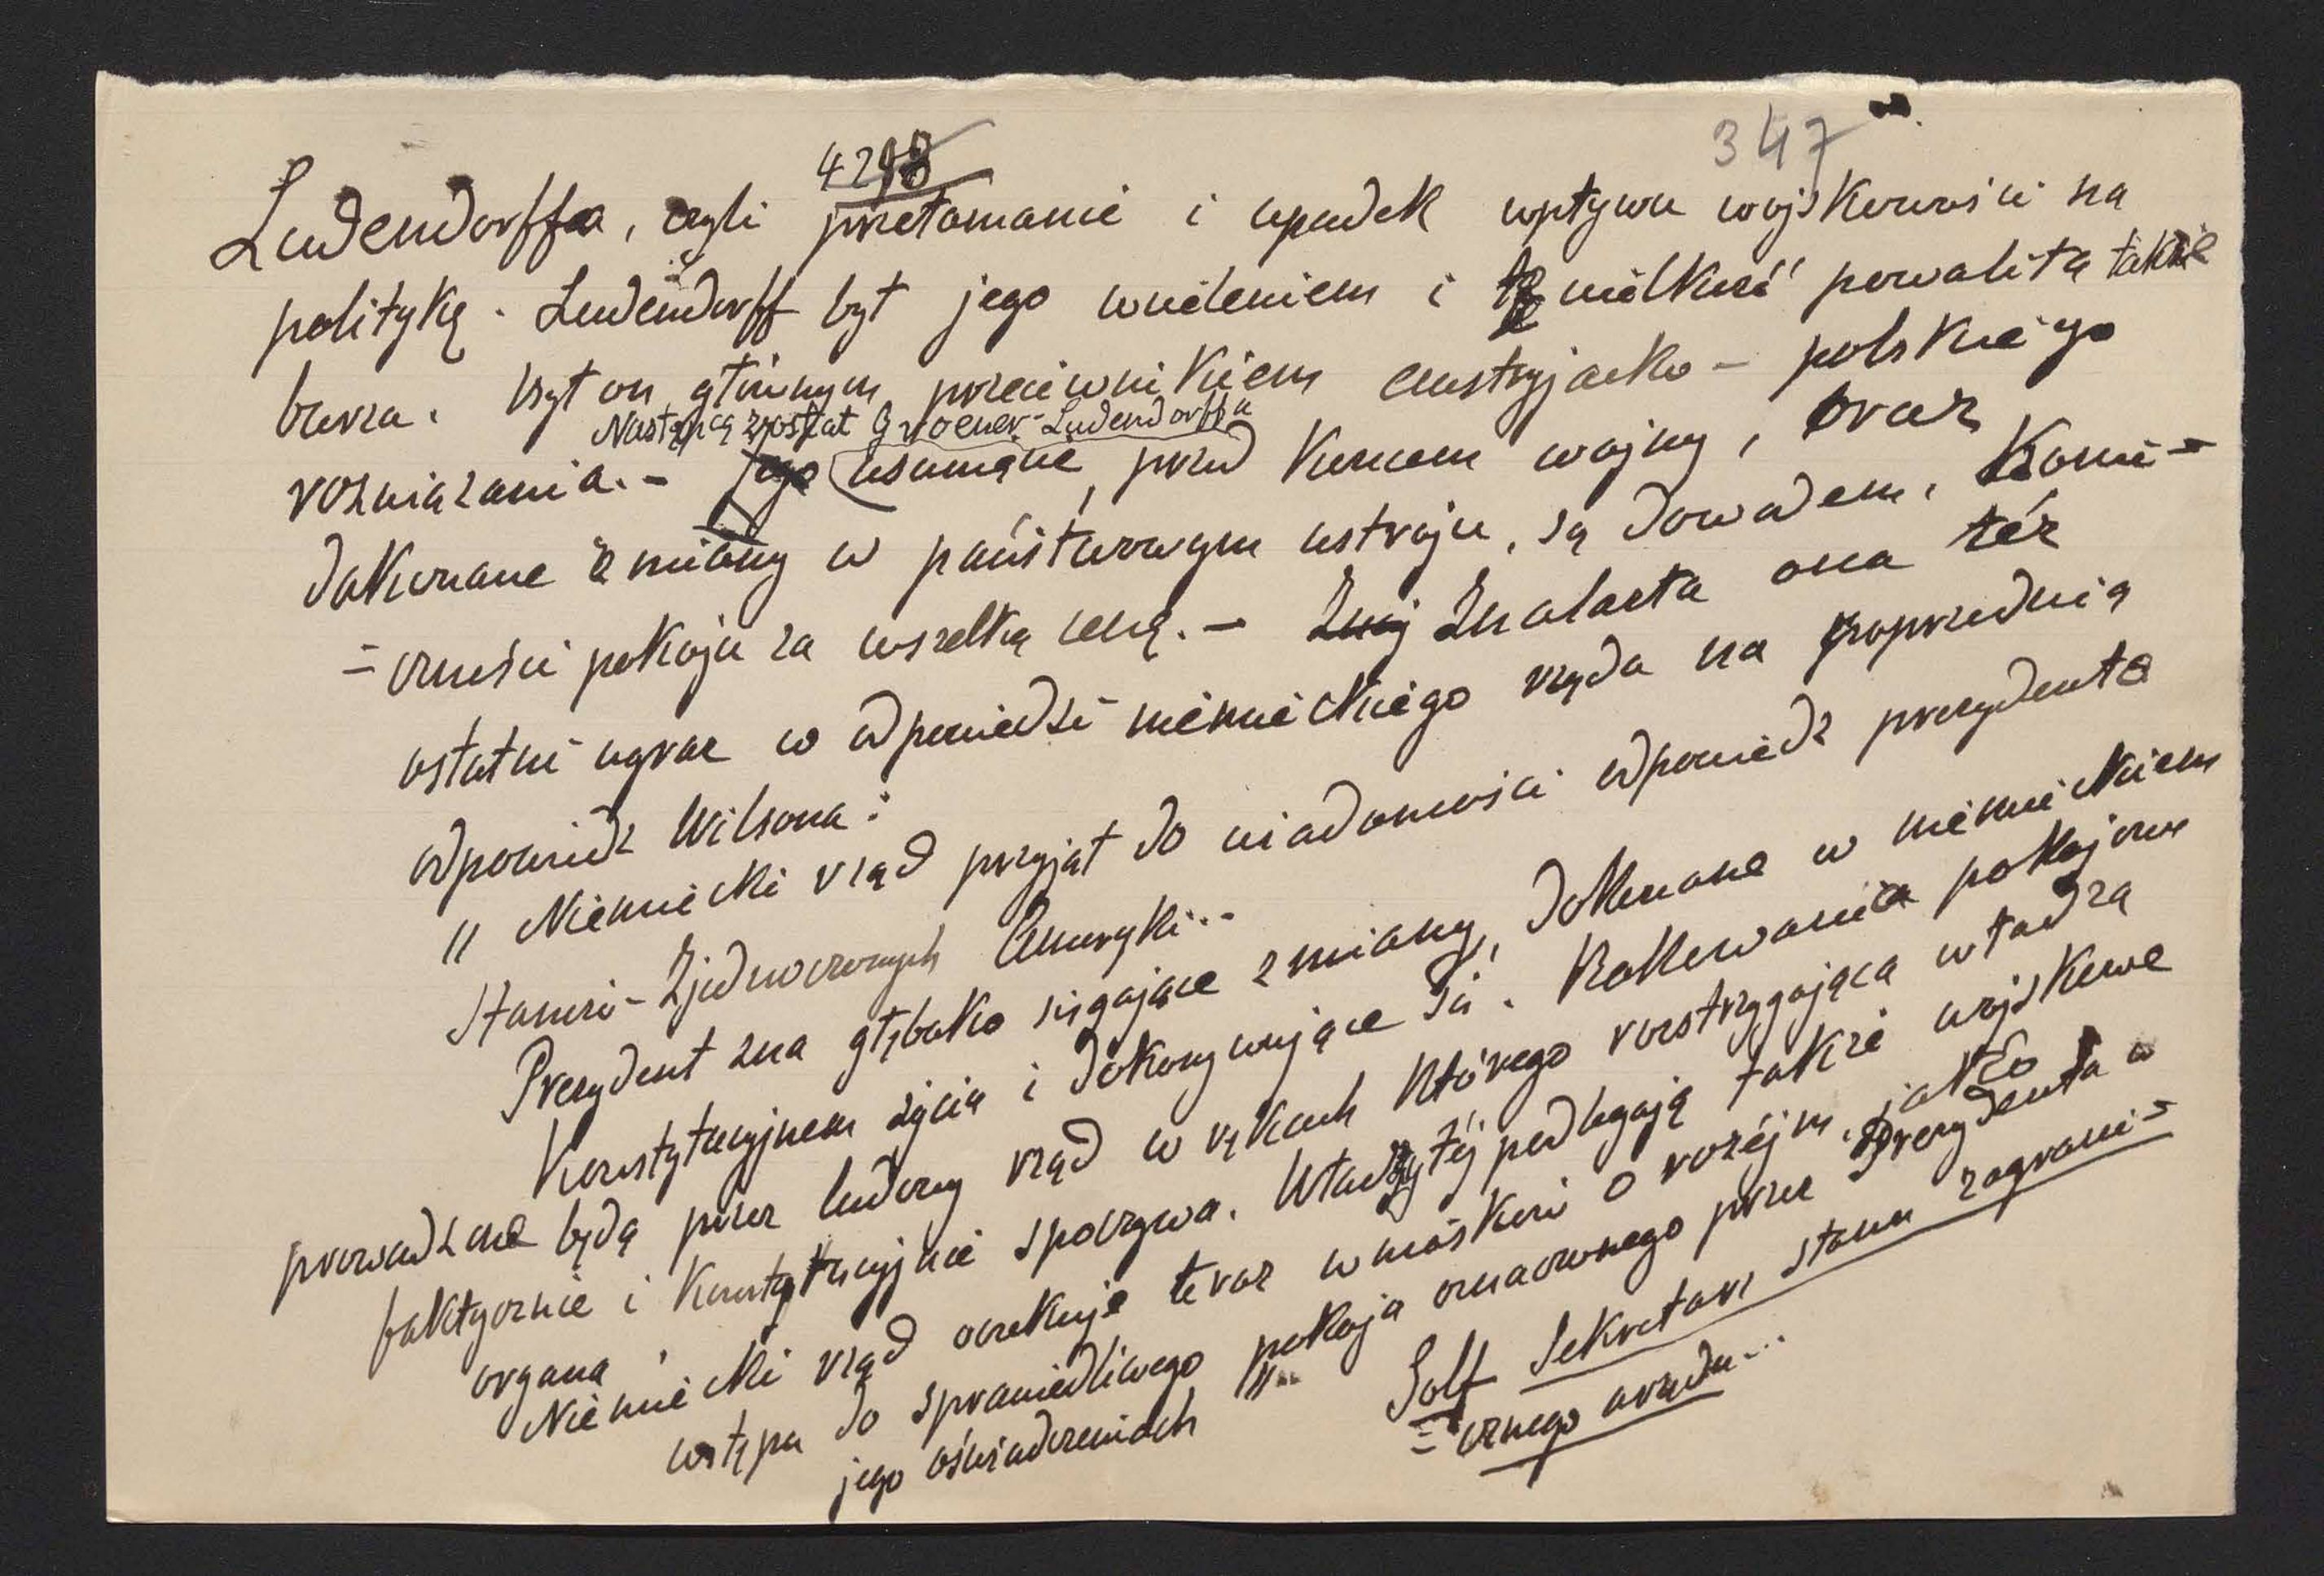 4298
347
Ludendorffa, czyli przełamanie i upadek wpływu wojskowości na
politykę. Ludendorff był jego wcieleniem i tę wielkość powaliła także
burza. Był on głównym przeciwnikiem austryjacko - polskiego
Następcą został Groener - Ludendorffa
rozwiązania. - Jego usunięcie, przed końcem wojny, oraz
dokonane zmiany w państwowym ustroju, są dowodem, koni-
= czności pokoju za wszelką cenę. - Znaj Znalazła ona też
ostatni wyraz w odpowiedzi niemieckiego rządu na poprzednią
odpowiedź Wilsona:
" Niemiecki rząd przyjął do wiadomości odpowiedź prezydenta
Stanów - Zjednoczonych Ameryki...
Prezydent zna głęboko sięgające zmiany, dokonane w niemieckiem
Konstytucyjnem życiu i dokonywujące się. Rokowania pokojowe
prowadzone będą przez ludowy rząd w rękach którego rozstrzygająca władza
faktycznie i konstytucyjnie spoczywa. Władzy tej podlegają także wojskowe
organa.
Niemiecki rząd oczekuje teraz wniosków o rozejm, jako
wstępu do sprawiedliwego pokoju oznaczonego przez Prezydenta w
jego oświadczeniach "..
Solf Sekretarz stanu zagrani-
= cznego urzędu...